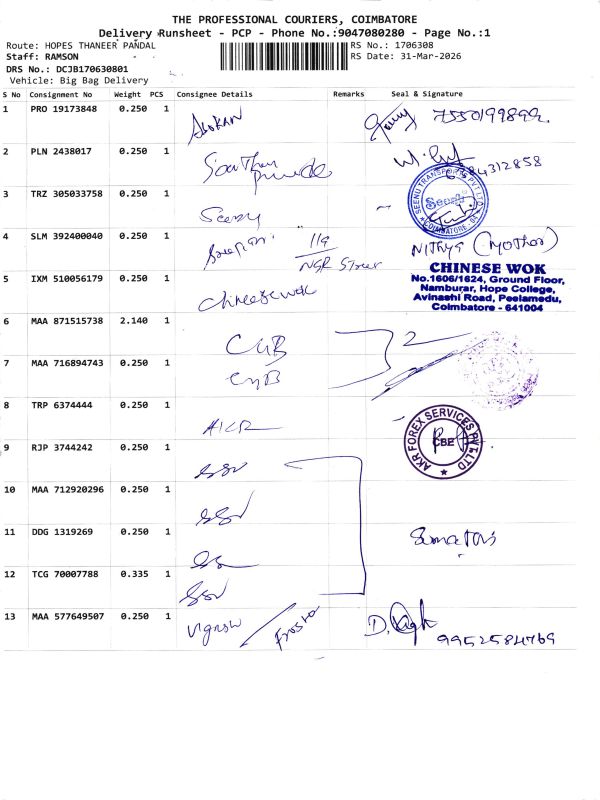 THE PROFESSIONAL COURIERS, COIMBATORE
Delivery Runsheet - PCP - Phone No.:9047080280 - Page No.:1
Route: HOPES THANEER PANDAL
RS No.: 1706308
Staff: RAMSON
RS Date: 31-Mar-2026
DRS No.: DCJB170630801
Vehicle: Big Bag Delivery
S No Consignment No Weight PCS Consignee Details Remarks Seal & Signature
1 PRO 19173848 0.250 1 ASOKAN 7550199899
2 PLN 2438017 0.250 1
3 TRZ 305033758 0.250 1
SEENU TRANSPORTS PVT LTD
COIMBATORE
4 SLM 392400040 0.250 1 119 NGR Street Nithya (Mother)
5 IXM 510056179 0.250 1
CHINESE WOK
No.1606/1624, Ground Floor,
Namburar, Hope College,
Avinashi Road, Peelamedu,
Coimbatore - 641004
6 MAA 871515738 2.140 1 CUB 2
7 MAA 716894743 0.250 1 CUB
8 TRP 6374444 0.250 1
AKR FOREX SERVICES PVT LTD
CBE
9 RJP 3744242 0.250 1 SSV
10 MAA 712920296 0.250 1 SSV
11 DDG 1319269 0.250 1
12 TCG 70007788 0.335 1 SSV
13 MAA 577649507 0.250 1 9952584769